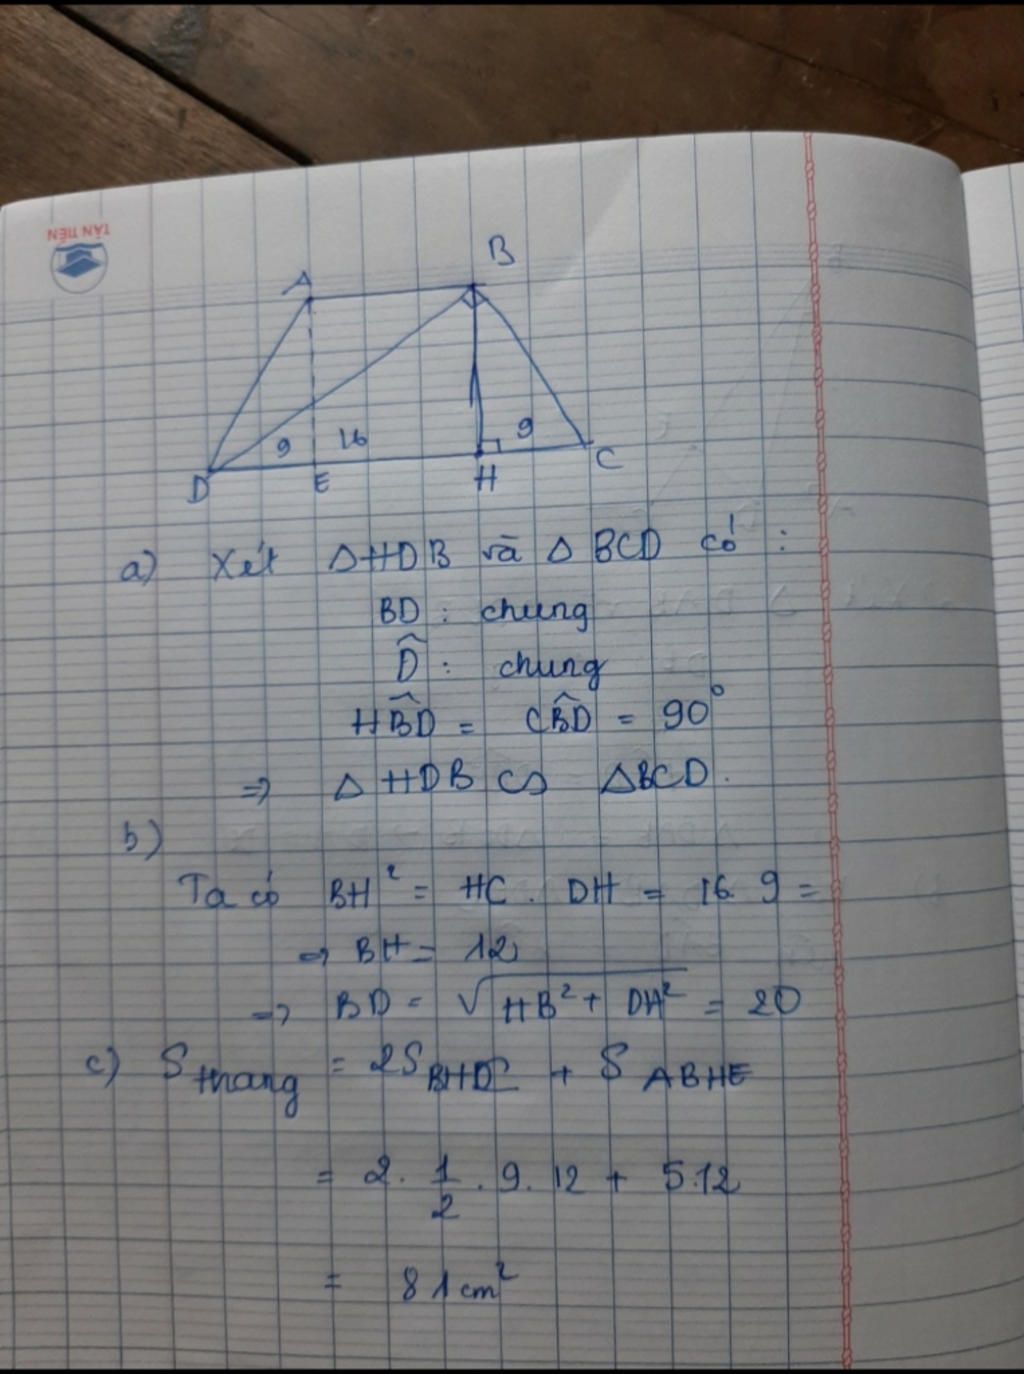 TÂN TIẾN
A B
9 16 9
D E H C
a) Xét ΔHDB và Δ BCD có :
BD : chung
D̂ : chung
HB̂D = CB̂D = 90°
=> Δ HDB ᔕ ΔBCD.
b)
Ta có BH² = HC . DH = 16. 9 =
=> BH = 12
=> BD = √HB² + DH² = 20
c) S thang = 2S + S ABHE
= 2. 1/2 . 9. 12 + 5.12
= 81cm²